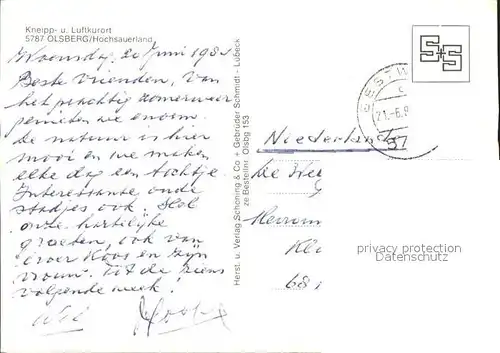 Kneipp- u. Luftkurort
5787 OLSBERG/Hochsauerland
Woensdag, 20 Juni 198
Beste vrienden, van
het prachtig zomerweer
genieten we enorm.
De natuur is hier
mooi en we maken
elke dag een tochtje.
Interessante oude
stadjes ook. Heel
onze hartelijke
groeten, ook van
broer Koos en zijn
vrouw. Tot de
volgende week!
Herst. u. Verlag Schöning & Co + Gebrüder Schmidt - Lübeck
ze Bestellnr. Olsbg 153
S+S
BESTW
21.-6.8
57
Niederland
De Hee
Herrn
Kle
68
privacy protection
Datenschutz